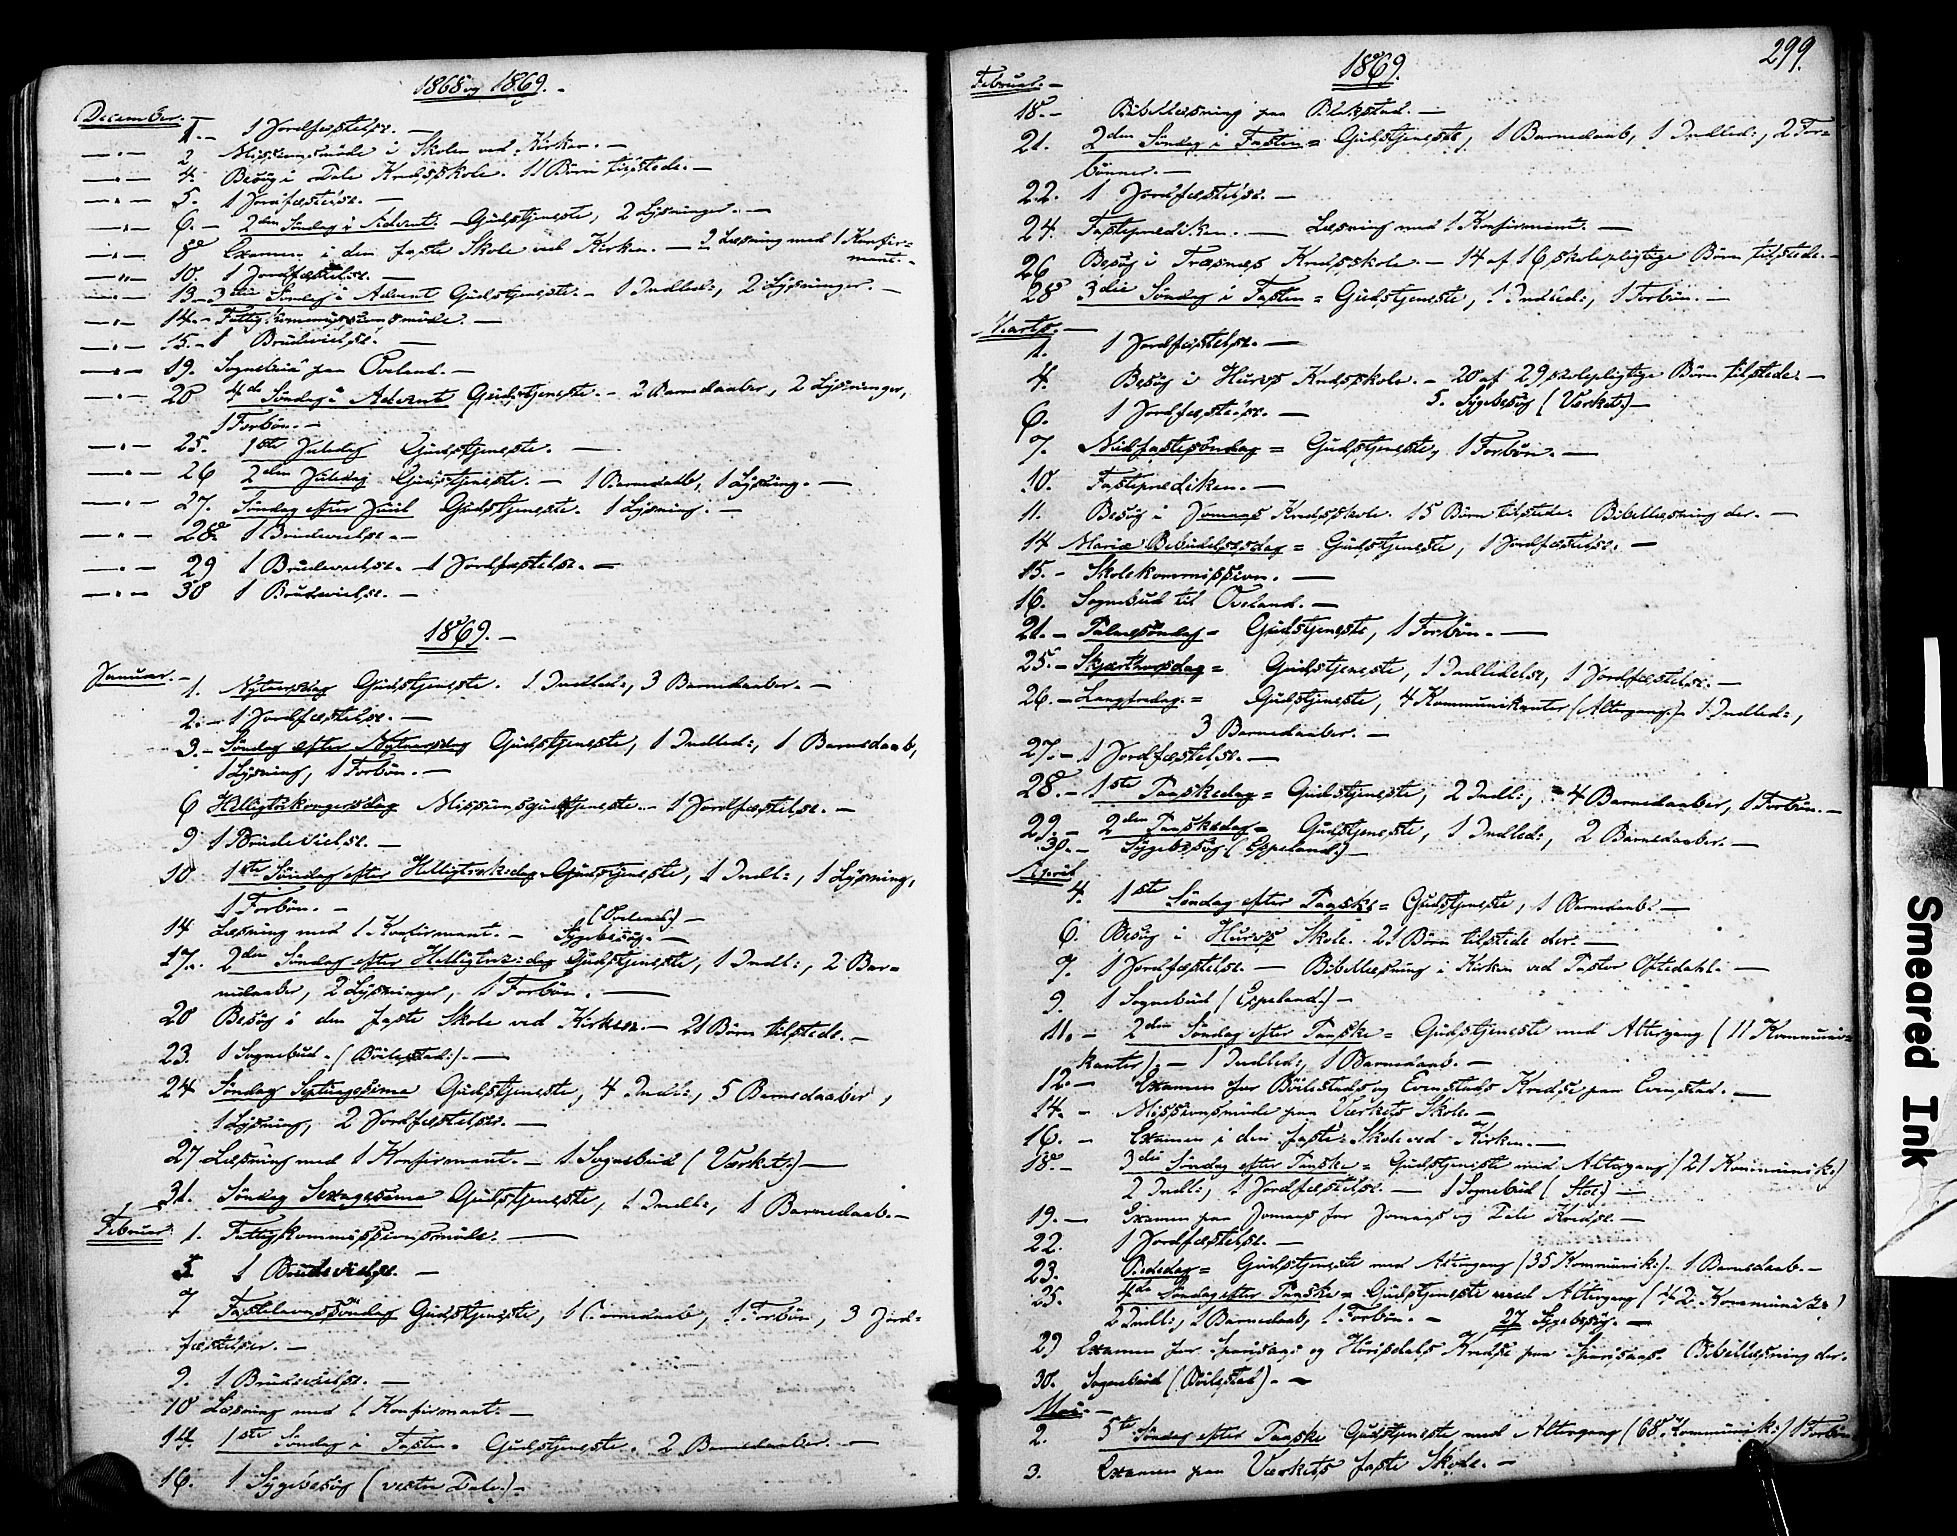 1868 og 1869. -
December. - 1. - 1 Jordfæstelse. -
— " — 2. Missionsmöde i Skolen ved Kirken. -
— " — 4. Besög i Dale Kredsskole. 11 Börn tilstede. -
— " — 5. 1 Jordfæstelse. -
— " — 6. - 2den Söndag i Advent. - Gudstjeneste, 2 Lysninger. -
— " — 8. Examen i den faste Skole ved Kirken. - Læsning med 1 Konfir-
mant. -
— " — 10. 1 Jordfæstelse. -
— " — 13. - 3die Söndag i Advent Gudstjeneste. - 1 Indled:, 2 Lysninger. -
— " — 14. - Fattigkommissionsmöde. -
— " — 15. - 1 Brudevielse. -
— " — 19. Sognebud paa Oveland. -
— " — 20 4de Söndag i Advent Gudstjeneste. - 2 Barnedaaber, 2 Lysninger,
1 Forbön. -
— " — 25. 1ste Juledag Gudstjeneste. -
— " — 26 2den Juledag Gudstjeneste. - 1 Barnedaab, 1 Lysning. -
— " — 27. Söndag efter Juul Gudstjeneste. 1 Lysning. -
— " — 28. 1 Brudevielse. -
— " — 29 1 Brudevielse. - 1 Jordfæstelse. -
— " — 30 1 Brudevielse. -
1869. -
Januar. - 1. Nytaarsdag Gudstjeneste. 1 Indled:, 3 Barnedaaber. -
2. - 1 Jordfæstelse. -
3. - Söndag efter Nytaarsdag Gudstjeneste, 1 Indled:, 1 Barnedaab,
1 Lysning, 1 Forbön. -
6 Helligtrekongersdag Missionsgudstjeneste. - 1 Jordfæstelse. -
9 1 Brudevielse. -
10 1ste Söndag efter Helligtrekedag Gudstjeneste, 1 Indl:, 1 Lysning,
1 Forbön. -
14 Læsning med 1 Konfirmant. - Sygebesög. (Oveland:) -
17. 2den Söndag efter Helligtre: dag Gudstjeneste, 1 Indl:, 2 Bar=
nedaaber, 2 Lysninger, 1 Forbön. -
20 Besög i den faste Skole ved Kirken. - 21 Börn tilstede. -
23. 1 Sognebud. (Böilestad:). -
24 Söndag Septuagesima Gudstjeneste, 4 Indl:, 5 Barnedaaber,
1 Lysning, 2 Jordfæstelser. -
27 Læsning med 1 Konfirmant. - 1 Sognebud (Værket:) -
31. Söndag Sexagesima Gudstjeneste, 1 Indl:, 1 Barnedaab. -
Februar. 1. Fattigkommissionsmöde. -
5 1 Brudevielse. -
7 Fastelavnssöndag Gudstjeneste, 1 Barnedaab, 1 Forbön, 3 Jord-
fæstelser. -
9. 1 Brudevielse. -
10 Læsning med 1 Konfirmant. -
14. 1ste Söndag i Fasten. Gudstjeneste. 2 Barnedaaber. -
16. 1 Sygebesög (vestre Dale.) -
299.
1869.
Februar. -
18. Bibellæsning paa Blakstad. -
21. 2den Söndag i Fasten = Gudstjeneste, 1 Barnedaab, 1 Indled:, 2 For=
bönner. -
22. 1 Jordfæstelse. -
24. Fasteprædiken. - Læsning med 1 Konfirmant. -
26 Besög i Træsnæs Kredsskole. - 14 af 16 skolepligtige Börn tilstede. -
28 3die Söndag i Fasten = Gudstjeneste, 1 Indled:, 1 Forbön. -
Marts. -
1. 1 Jordfæstelse. -
4. Besög i Hurvs Kredsskole. - 20 af 29 skolepligtige Börn tilstede. -
5. Sygebesög (Værket:) -
6. 1 Jordfæstelse. -
7. Midfastesöndag = Gudstjeneste, 1 Forbön. -
10. Fasteprædiken. -
11. Besög i Jomaas Kredsskole. 15 Börn tilstede. Bibellæsning der. -
14 Mariæ Bebudelsesdag = Gudstjeneste, 1 Jordfæstelse. -
15. - Skolekommission. -
16. Sognebud til Oveland. -
21. - Palmesöndag = Gudstjeneste, 1 Forbön. -
25. - Skjærthorsdag = Gudstjeneste, 1 Indledelse, 1 Jordfæstelse. -
26. - Langfredag. = Gudstjeneste, 4 Kommunikanter (Altergang.) - 1 Indled:,
3 Barnedaaber. -
27. - 1 Jordfæstelse. -
28. - 1ste Paaskedag = Gudstjeneste, 2 Indl:, 4 Barnedaaber, 1 Forbön. -
29. - 2den Paaskedag = Gudstjeneste, 1 Indled:, 2 Barnedaaber. -
30. - Sygebesög (Eppeland:) -
April
4. 1ste Söndag efter Paaske = Gudstjeneste, 1 Barnedaab. -
6. Besög i Hurvs Skole. 21 Börn tilstede der. -
7. 1 Jordfæstelse. - Bibellæsning i Kirken ved Pastor Oftedahl. -
9. 1 Sognebud (Eppeland.) -
11. - 2den Söndag efter Paaske = Gudstjeneste med Altergang (11 Kommuni=
kanter). - 1 Indled:, 1 Barnedaab. -
12. - Examen for Böilestads og Evenstads Kredse paa Evenstad. -
14. - Missionsmöde paa Værkets Skole. -
16. - Examen i den faste Skole ved Kirken. -
18. - 3die Söndag efter Paaske = Gudstjeneste med Altergang (21 Kommunik:)
2 Indl:, 1 Jordfæstelse. - 1 Sognebud (Stoe) -
19. - Examen paa Jomaas for Jomaas og Dale Kredse. -
22. 1 Jordfæstelse. -
23. Bededag = Gudstjeneste med Altergang (35 Kommunik:). 1 Barnedaab. -
25. 4de Söndag efter Paaske = Gudstjeneste med Altergang (42 Kommunik:)
2 Indl:, 1 Barnedaab, 1 Forbön. - 27 Sygebesög. -
29 Examen for og Kredse paa Bibellæsning der.
30. Sognebud (Böilestad). -
Mai. -
2. 5te Söndag efter Paaske Gudstjeneste med Altergang (68 Kommunik:) 1 Forbön
3. Examen paa Værkets faste Skole. -
Smeared Ink